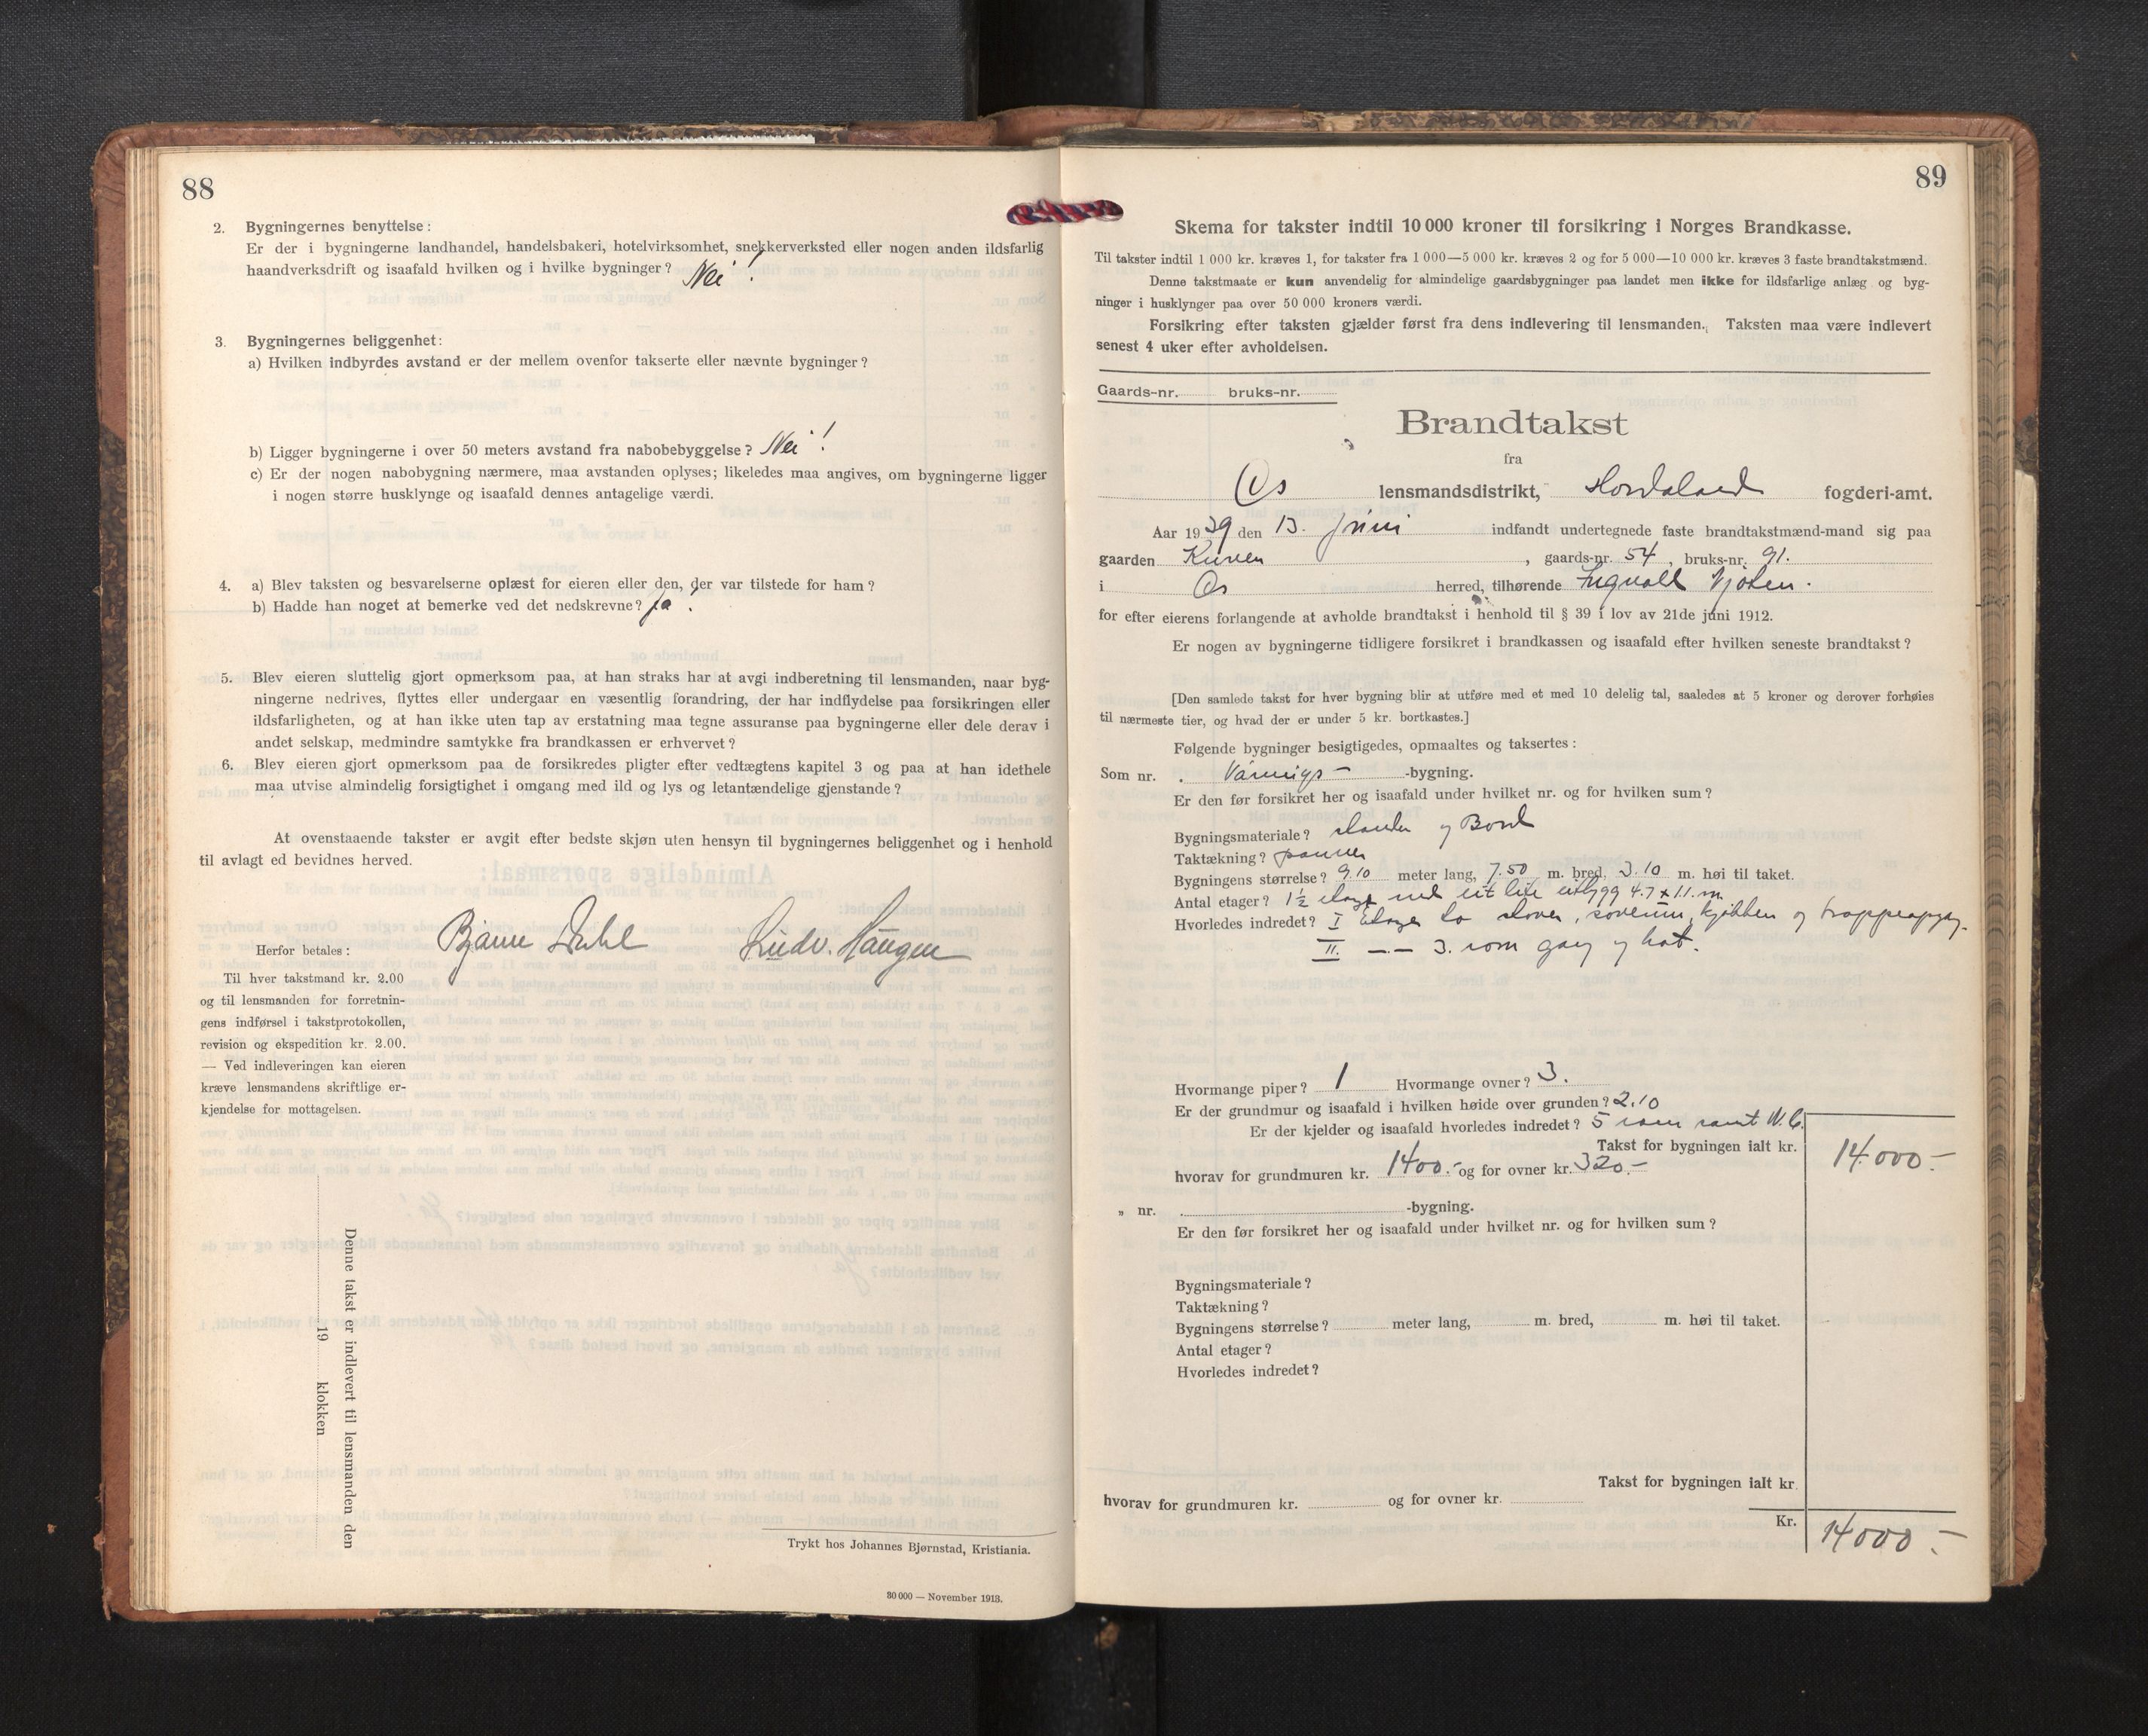 88
2. Bygningernes benyttelse:
Er der i bygningerne landhandel, handelsbakeri, hotelvirksomhet, snekkerverksted eller nogen anden ildsfarlig
haandverksdrift og isaafald hvilken og i hvilke bygninger? Nei!
3. Bygningernes beliggenhet:
a) Hvilken indbyrdes avstand er der mellem ovenfor takserte eller nævnte bygninger?
b) Ligger bygningerne i over 50 meters avstand fra nabobebyggelse? Nei!
c) Er der nogen nabobygning nærmere, maa avstanden oplyses; likeledes maa angives, om bygningerne ligger
i nogen større husklynge og isaafald dennes antagelige værdi.
4. a) Blev taksten og besvarelserne oplæst for eieren eller den, der var tilstede for ham?
b) Hadde han noget at bemerke ved det nedskrevne? Ja!
5. Blev eieren sluttelig gjort opmerksom paa, at han straks har at avgi indberetning til lensmanden, naar byg-
ningerne nedrives, flyttes eller undergaar en væsentlig forandring, der har indflydelse paa forsikringen eller
ildsfarligheten, og at han ikke uten tap av erstatning maa tegne assuranse paa bygningerne eller dele derav i
andet selskap, medmindre samtykke fra brandkassen er erhvervet?
6. Blev eieren gjort opmerksom paa de forsikredes pligter efter vedtægtens kapitel 3 og paa at han idethele
maa utvise almindelig forsigtighet i omgang med ild og lys og letantændelige gjenstande?
At ovenstaaende takster er avgit efter bedste skjøn uten hensyn til bygningernes beliggenhet og i henhold
til avlagt ed bevidnes herved.
Bjarne Dahl Ludv. Haugen
Herfor betales:
Til hver takstmand kr. 2.00
og til lensmanden for forretnin-
gens indførsel i takstprotokollen,
revision og ekspedition kr. 2.00.
— Ved indleveringen kan eieren
kræve lensmandens skriftlige er-
kjendelse for mottagelsen.
Denne takst er indlevert til lensmanden den
19 klokken
Trykt hos Johannes Bjørnstad, Kristiania.
30 000 — November 1913.
89
Skema for takster indtil 10 000 kroner til forsikring i Norges Brandkasse.
Til takster indtil 1 000 kr. kræves 1, for takster fra 1 000—5 000 kr. kræves 2 og for 5 000—10 000 kr. kræves 3 faste brandtakstmænd.
Denne takstmaate er kun anvendelig for almindelige gaardsbygninger paa landet men ikke for ildsfarlige anlæg og byg-
ninger i husklynger paa over 50 000 kroners værdi.
Forsikring efter taksten gjælder først fra dens indlevering til lensmanden. Taksten maa være indlevert
senest 4 uker efter avholdelsen.
Gaards-nr. bruks-nr.
Brandtakst
fra
Os lensmandsdistrikt, Hordaland fogderi-amt.
Aar 1939 den 13. juni indfandt undertegnede faste brandtakstmænd-mand sig paa
gaarden Kuven, gaards-nr. 54, bruks-nr. 91.
i Os herred, tilhørende Ingvald
for efter eierens forlangende at avholde brandtakst i henhold til § 39 i lov av 21de juni 1912.
Er nogen av bygningerne tidligere forsikret i brandkassen og isaafald efter hvilken seneste brandtakst?
[Den samlede takst for hver bygning blir at utføre med et med 10 delelig tal, saaledes at 5 kroner og derover forhøies
til nærmeste tier, og hvad der er under 5 kr. bortkastes.]
Følgende bygninger besigtigedes, opmaaltes og taksertes:
Som nr. . Vånings- -bygning.
Er den før forsikret her og isaafald under hvilket nr. og for hvilken sum?
Bygningsmateriale? og Bord
Taktækning? panner
Bygningens størrelse? 9.10 meter lang, 7.50 m. bred, 3.10 m. høi til taket.
Antal etager? 1½ etage med eit lite utbygg 4.7 x 1.1. m.
Hvorledes indredet? I Etage to stover, soverum, kjökken og trappeopgang.
II. — — 3. rom gang og kot.
Hvormange piper? 1 Hvormange ovner? 3.
Er der grundmur og isaafald i hvilken høide over grunden? 2.10
Er der kjelder og isaafald hvorledes indredet? 5 rom samt W.C.
Takst for bygningen ialt kr. 14000.-
hvorav for grundmuren kr. 1400.- og for ovner kr. 320.-
„ nr. . -bygning.
Er den før forsikret her og isaafald under hvilket nr. og for hvilken sum?
Bygningsmateriale?
Taktækning?
Bygningens størrelse? meter lang, m. bred, m. høi til taket.
Antal etager?
Hvorledes indredet?
Takst for bygningen ialt kr.
hvorav for grundmuren kr. og for ovner kr.
Kr. 14000.-